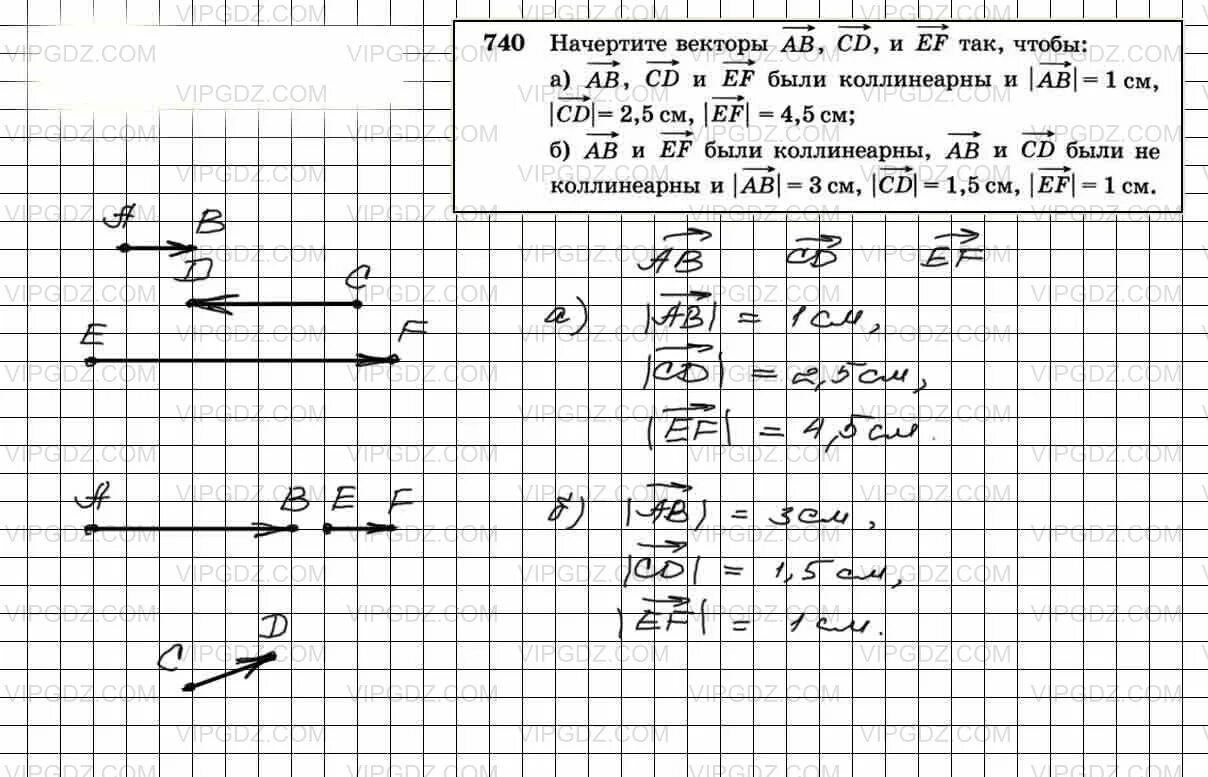 740 Начертите векторы AB, CD, и EF так, чтобы:
а) AB, CD и EF были коллинеарны и |AB| = 1 см,
|CD| = 2,5 см, |EF| = 4,5 см;
б) AB и EF были коллинеарны, AB и CD были не
коллинеарны и |AB| = 3 см, |CD| = 1,5 см, |EF| = 1 см.
A B
D C
E F
AB CD EF
а) |AB| = 1 см,
|CD| = 2,5 см,
|EF| = 4,5 см.
A B E F
б) |AB| = 3 см,
|CD| = 1,5 см,
|EF| = 1 см.
C D
VIPGDZ.COM